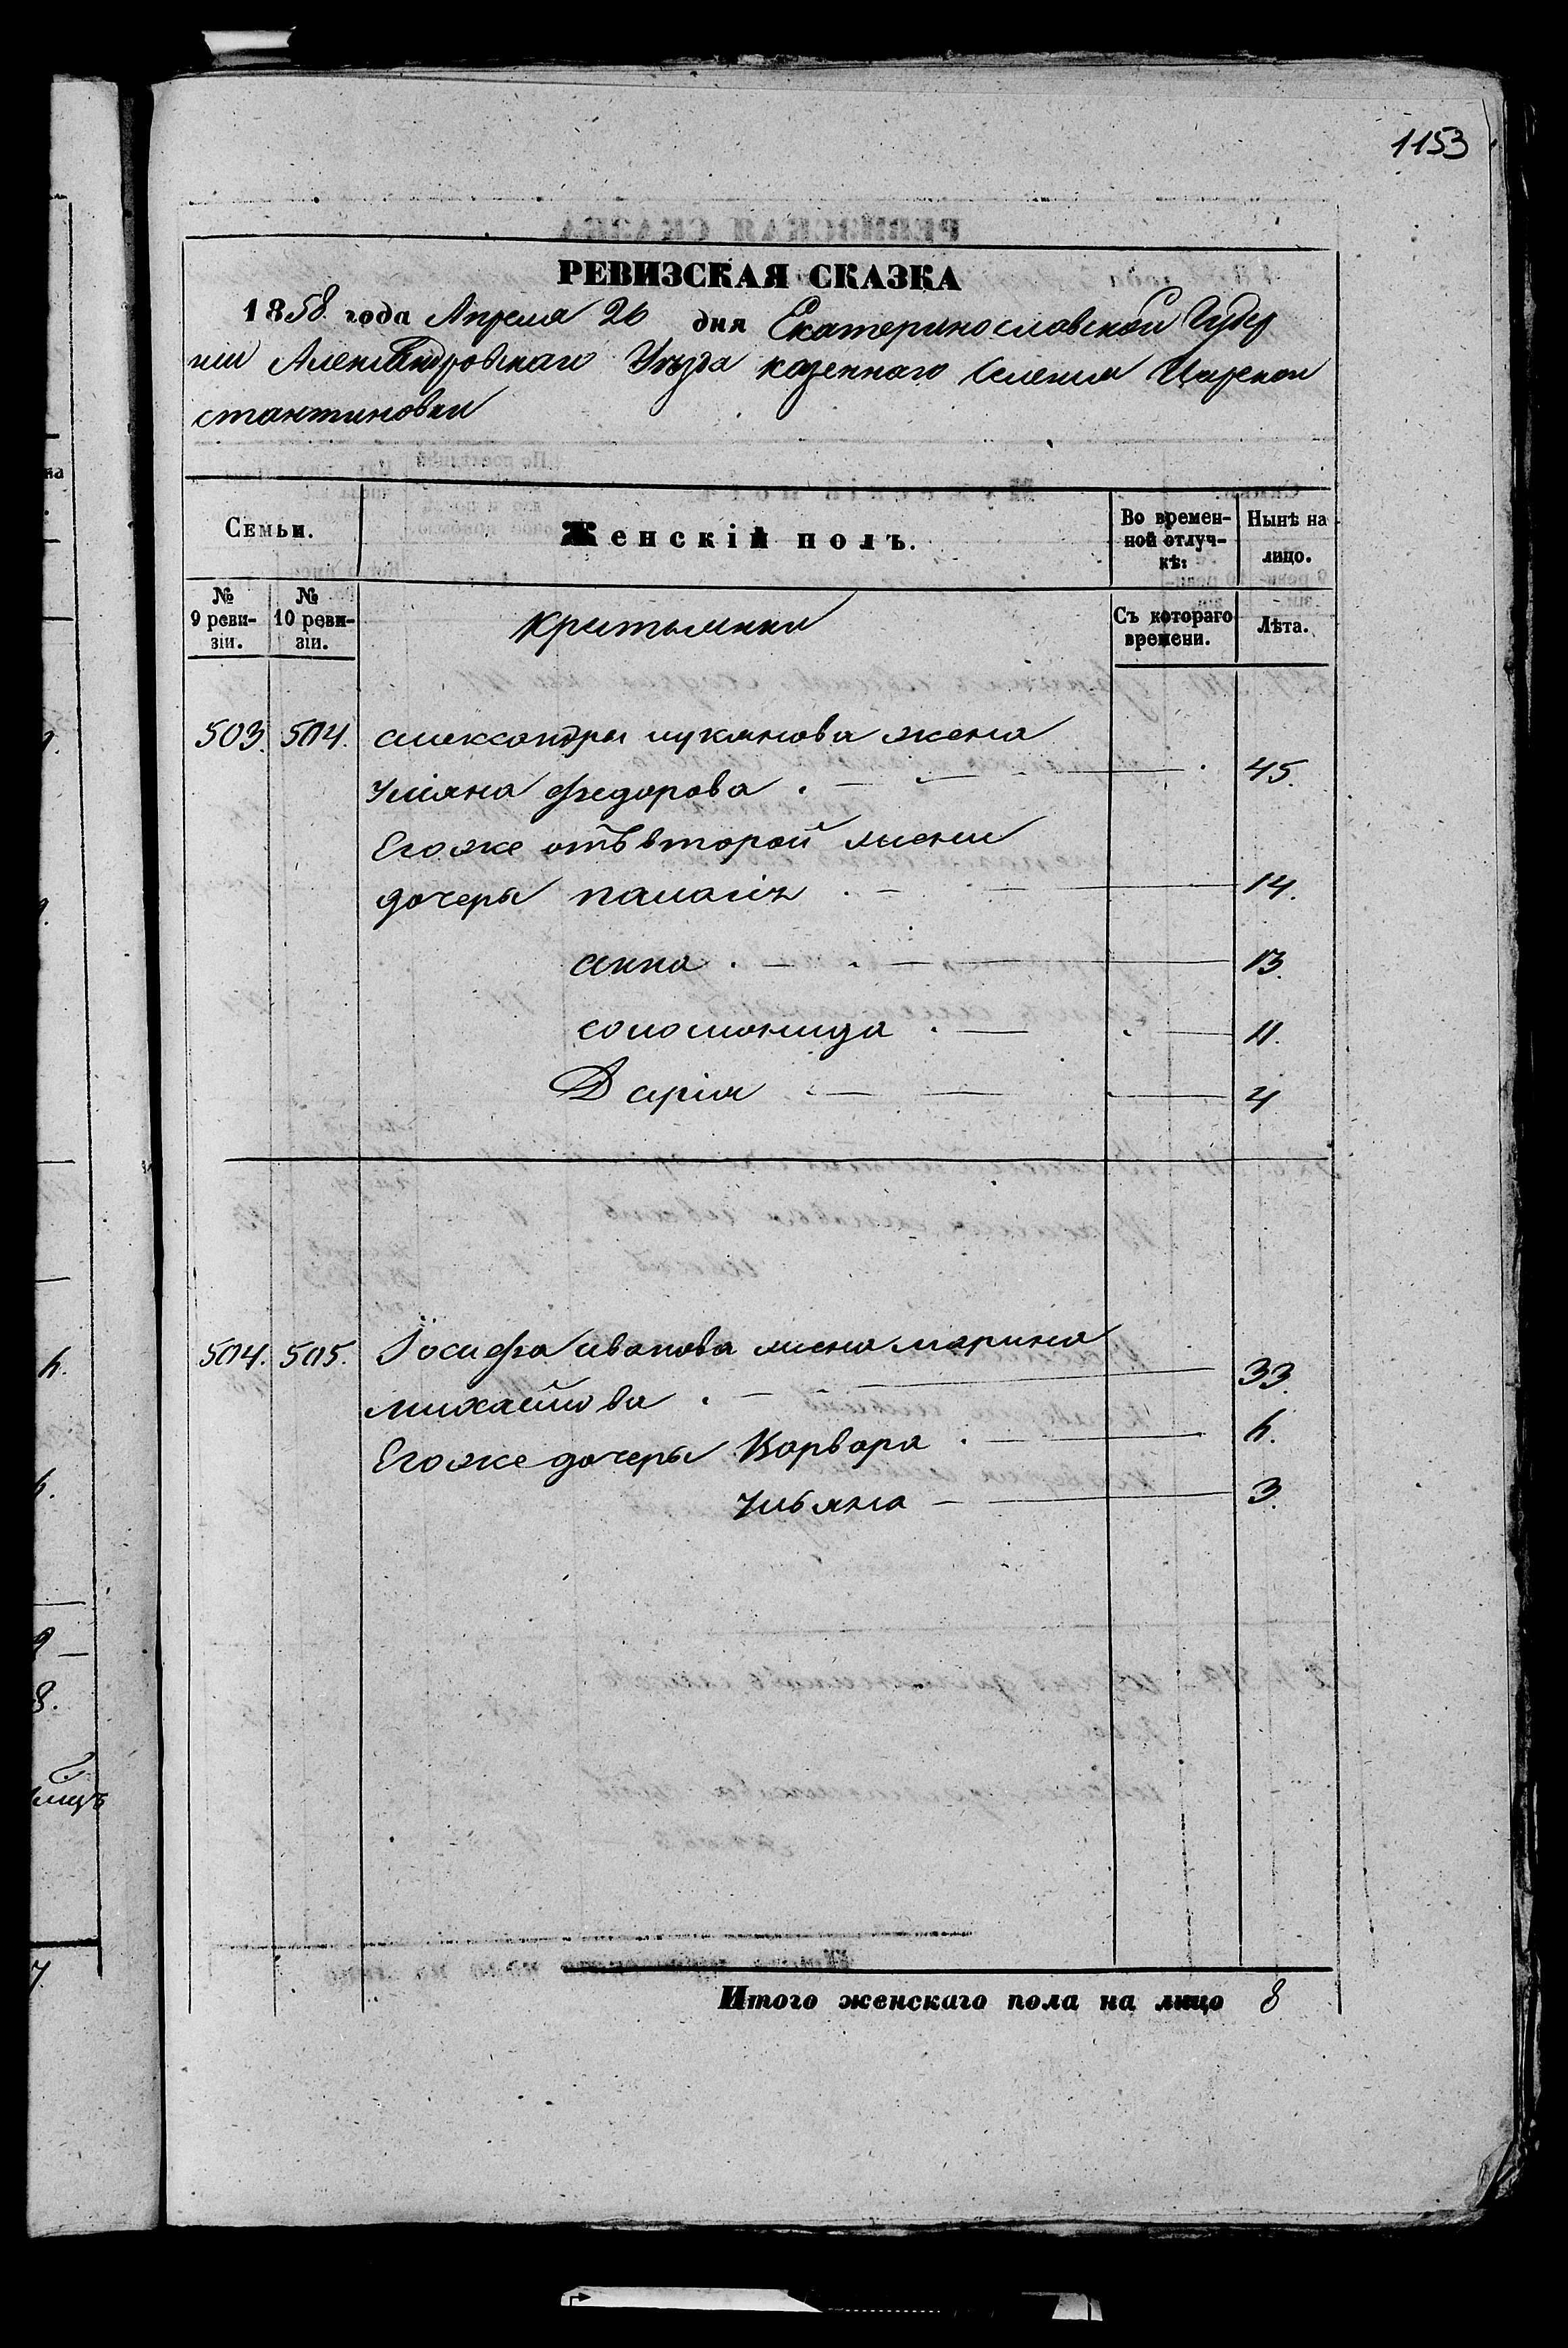 1153
РЕВИЗСКАЯ СКАЗКА
1858 года Апреля 26 дня Екатеринославской Губер
ніи Александровскаго Уѣзда казеннаго Селения Царекон
стантиновки
Семьи.
Женскій полъ.
Во времен-
ной отлуч-
кѣ:
Нынѣ на
лицо.
№
9 реви-
зіи.
№
10 реви-
зіи.
Съ котораго
времени.
Лѣта.
503. 504. александра лукянова жена
Уліяна федорова . — 45.
Егоже отъ второй жены
дочеры палагія . — 14.
анна . — 13.
соломонида . — 11.
Дарія — 4
504. 505. Іосифа иванова жена марина
михайлова . — 33.
Егоже дочеры Варвара . — 6.
Ульяна — 3.
Итого женскаго пола на лицо 8